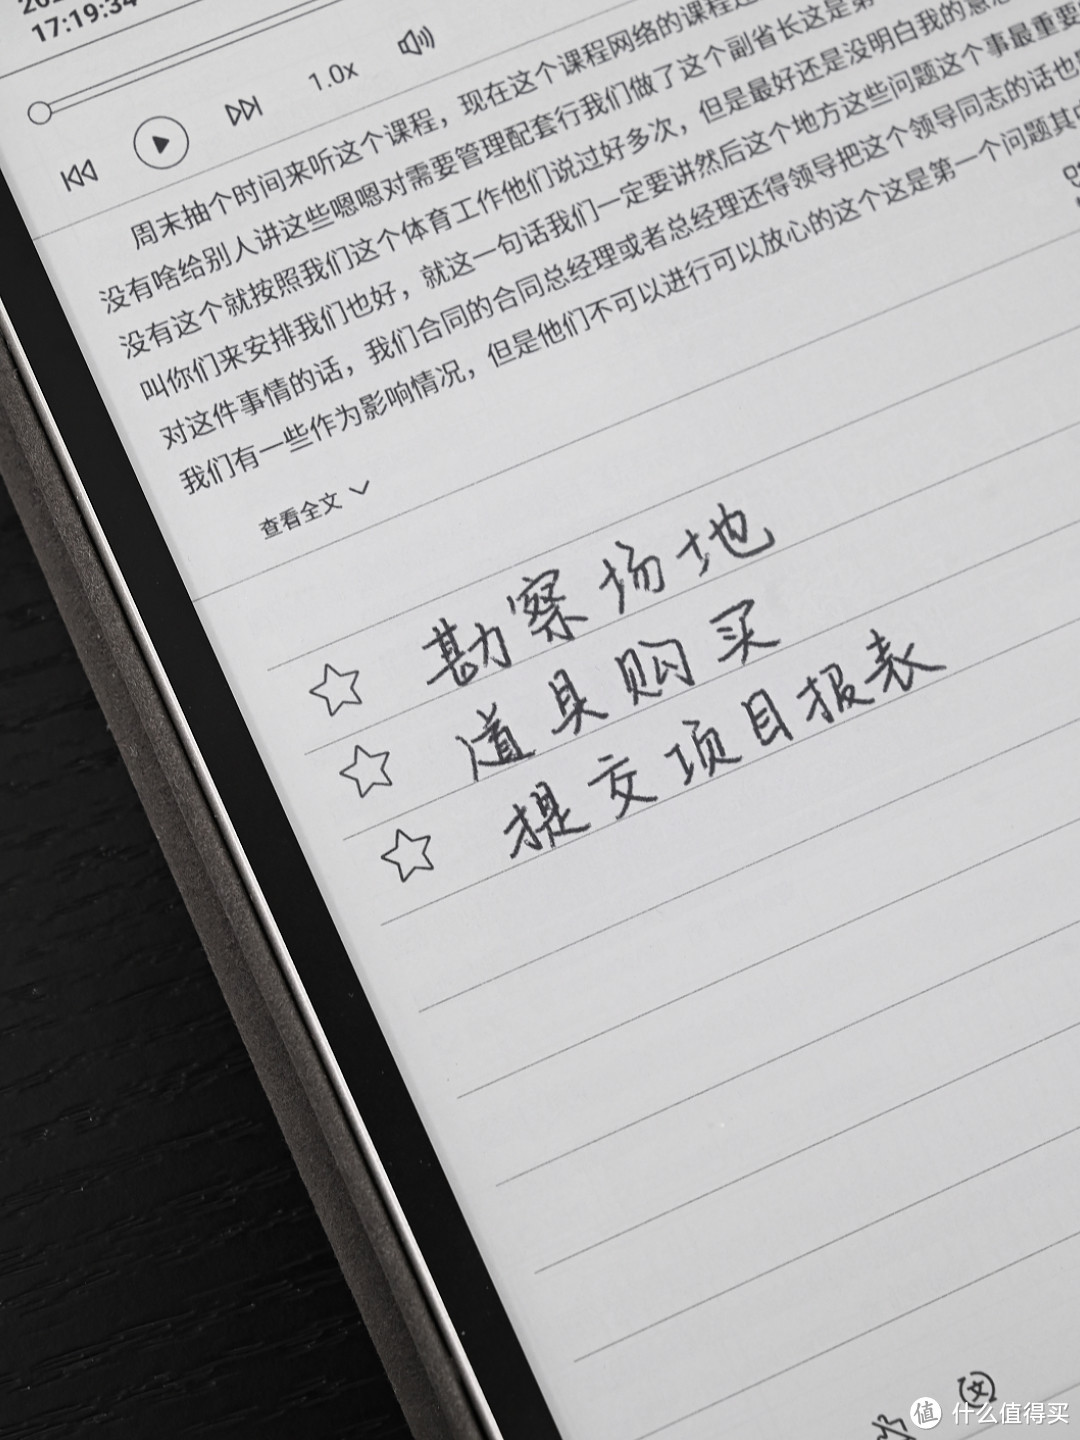 17:19:34
1.0x
周末抽个时间来听这个课程，现在这个课程网络的课程
没有啥给别人讲这些嗯嗯对需要管理配套行我们做了这个副省长这是第
没有这个就按照我们这个体育工作他们说过好多次，但是最好还是没明白我的意
叫你们来安排我们也好，就这一句话我们一定要讲然后这个地方这些问题这个事最重要
对这件事情的话，我们合同的合同总经理或者总经理还得领导把这个领导同志的话也
我们有一些作为影响情况，但是他们不可以进行可以放心的这个这是第一个问题其
查看全文
勘察场地
道具购买
提交项目报表
文
值 什么值得买